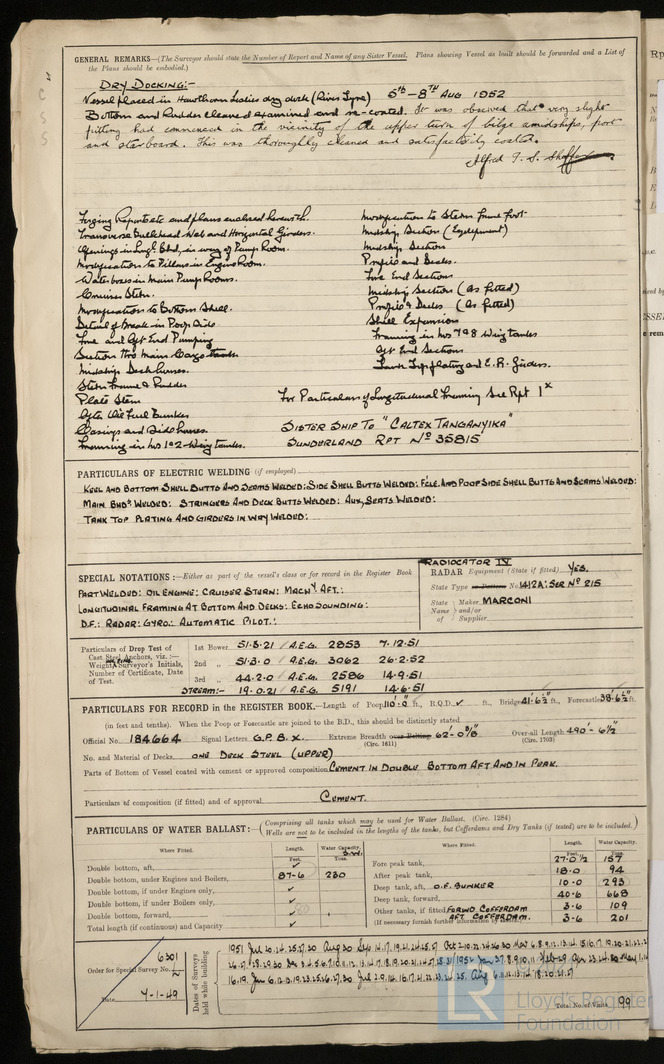 GENERAL REMARKS—(The Surveyor should state the Number of Report and Name of any Sister Vessel. Plans showing Vessel as built should be forwarded and a List of
the Plans should be embodied.)
DRY DOCKING:-
Vessel placed in Hawthorn Leslies dry dock (River Tyne) 6th - 8th AUG 1952
Bottom and Rudder cleaned examined and re-coated. It was observed that very slight
pitting had commenced in the vicinity of the upper turn of bilge amidships, port
and starboard. This was thoroughly cleaned and satisfactorily coated.
Forging Reports etc and plans enclosed herewith.
Transverse Bulkhead Web and Horizontal Girders.
Openings in Longl Bhd, in way of Pump Room.
Modification to Pillars in Engine Room.
Water boxes in Main Pump Rooms.
Cruiser Stern.
Modification to Bottom Shell.
Detail of Break in Poop Side
Fore and Aft End Pumping
Section thro Main Cargo Tanks
Midship Deck houses.
Stern Frame & Rudder
Plate Stem
After Oil Fuel Bunker
Casings and Side houses.
Framing in Nos 1 & 2 Wing tanks.
Modification to Stern frame foot
Midship Section (Equipment)
Midship Section
Profile and Decks.
Fore End Sections
Midship Section (As fitted)
Profile & Decks (As fitted)
Shell Expansion
Framing in Nos 7 & 8 Wing tanks
Aft End Sections
Tank Top plating and E.R. Girders.
For Particulars of Longitudinal Framing See Rpt 1x
SISTER SHIP TO "CALTEX TANGANYIKA"
SUNDERLAND RPT No 35815
PARTICULARS OF ELECTRIC WELDING (if employed)
KEEL AND BOTTOM SHELL BUTTS AND SEAMS WELDED: SIDE SHELL BUTTS WELDED: FCLE. AND POOP SIDE SHELL BUTTS AND SEAMS WELDED:
MAIN BHDS WELDED: STRINGERS AND DECK BUTTS WELDED: AUX, SEATS WELDED:
TANK TOP PLATING AND GIRDERS IN WAY WELDED:
SPECIAL NOTATIONS:—Either as part of the vessel's class or for record in the Register Book
PART WELDED: OIL ENGINE: CRUISER STERN: MACHY AFT.:
LONGITUDINAL FRAMING AT BOTTOM AND DECKS: ECHO SOUNDING:
D.F.: RADAR: GYRO: AUTOMATIC PILOT.:
RADIOLOCATOR IV
RADAR Equipment (State if fitted) YES.
State Type No. 1412A: SER No 215
State Name of Maker and/or Supplier MARCONI
Particulars of Drop Test of
Cast Steel Anchors, viz.:—
Weight, Surveyor's Initials,
Number of Certificate, Date
of Test.
1st Bower 51.3.21 / A.E.G. 2853 7.12.51
2nd „ 51.3.0 / A.E.G. 3062 26.2.52
3rd „ 44.2.0 / A.E.G. 2586 14.9.51
STREAM:- 19.0.21 / A.E.G. 5191 14.6.51
PARTICULARS FOR RECORD in the REGISTER BOOK.—Length of Poop 110'.0" ft., R.Q.D. ✓ ft., Bridge 41'-6½" ft., Forecastle 38'-6½" ft.
(in feet and tenths). When the Poop or Forecastle are joined to the B.D., this should be distinctly stated
Official No. 184664 Signal Letters G.P.B.X. Extreme Breadth over Belting 62'-0⅜" (Circ. 1611) Over-all Length 490'-6½" (Circ. 1703)
No. and Material of Decks ONE DECK STEEL (UPPER)
Parts of Bottom of Vessel coated with cement or approved composition CEMENT IN DOUBLE BOTTOM AFT AND IN PEAK.
Particulars of composition (if fitted) and of approval CEMENT.
PARTICULARS OF WATER BALLAST:—(Comprising all tanks which may be used for Water Ballast. (Circ. 1284)
Wells are not to be included in the lengths of the tanks, but Cofferdams and Dry Tanks (if tested) are to be included.)
Where Fitted. Length. Feet. Water Capacity. Tons. S.W.
Double bottom, aft, ✓
Double bottom, under Engines and Boilers, 87-6 280
Double bottom, if under Engines only, ✓
Double bottom, if under Boilers only, ✓
Double bottom, forward, ✓
Total length (if continuous) and Capacity ✓
Where Fitted. Length. Feet. Water Capacity. Tons.
Fore peak tank, 27.0½ 157
After peak tank, 18.0 94
Deep tank, aft, O.F. BUNKER 10.0 293
Deep tank, forward, 40.6 668
Other tanks, if fitted, FORWD COFFERDAM 3-6 109
AFT COFFERDAM. 3-6 201
(If necessary furnish further information by sketch)
Order for Special Survey No. 6301
Date 4-1-49
Dates of Surveys held while building
Total No. of Visits 99
LR
Lloyd's Register
Foundation